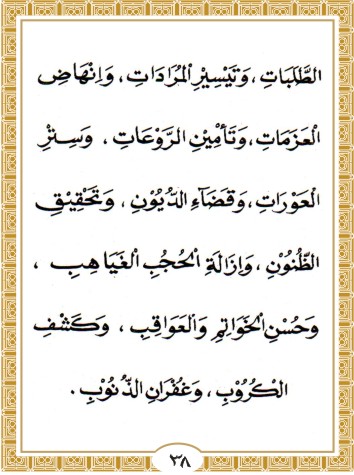 الطَّلَبَاتِ ، وَتَيْسِيْرِ الْمُرَادَاتِ ، وَإِنْهَاضِ
الْعَزَمَاتِ ، وَتَأْمِيْنِ الرَّوْعَاتِ ، وَسَتْرِ
الْعَوْرَاتِ ، وَقَضَآءِ الدُّيُوْنِ ، وَتَحْقِيْقِ
الظُّنُوْنِ ، وَإِزَالَةِ الْحُجُبِ الْغَيَاهِبِ ،
وَحُسْنِ الْخَوَاتِمِ وَالْعَوَاقِبِ ، وَكَشْفِ
الْكُرُوْبِ ، وَغُفْرَانِ الذُّنُوْبِ .
٣٨